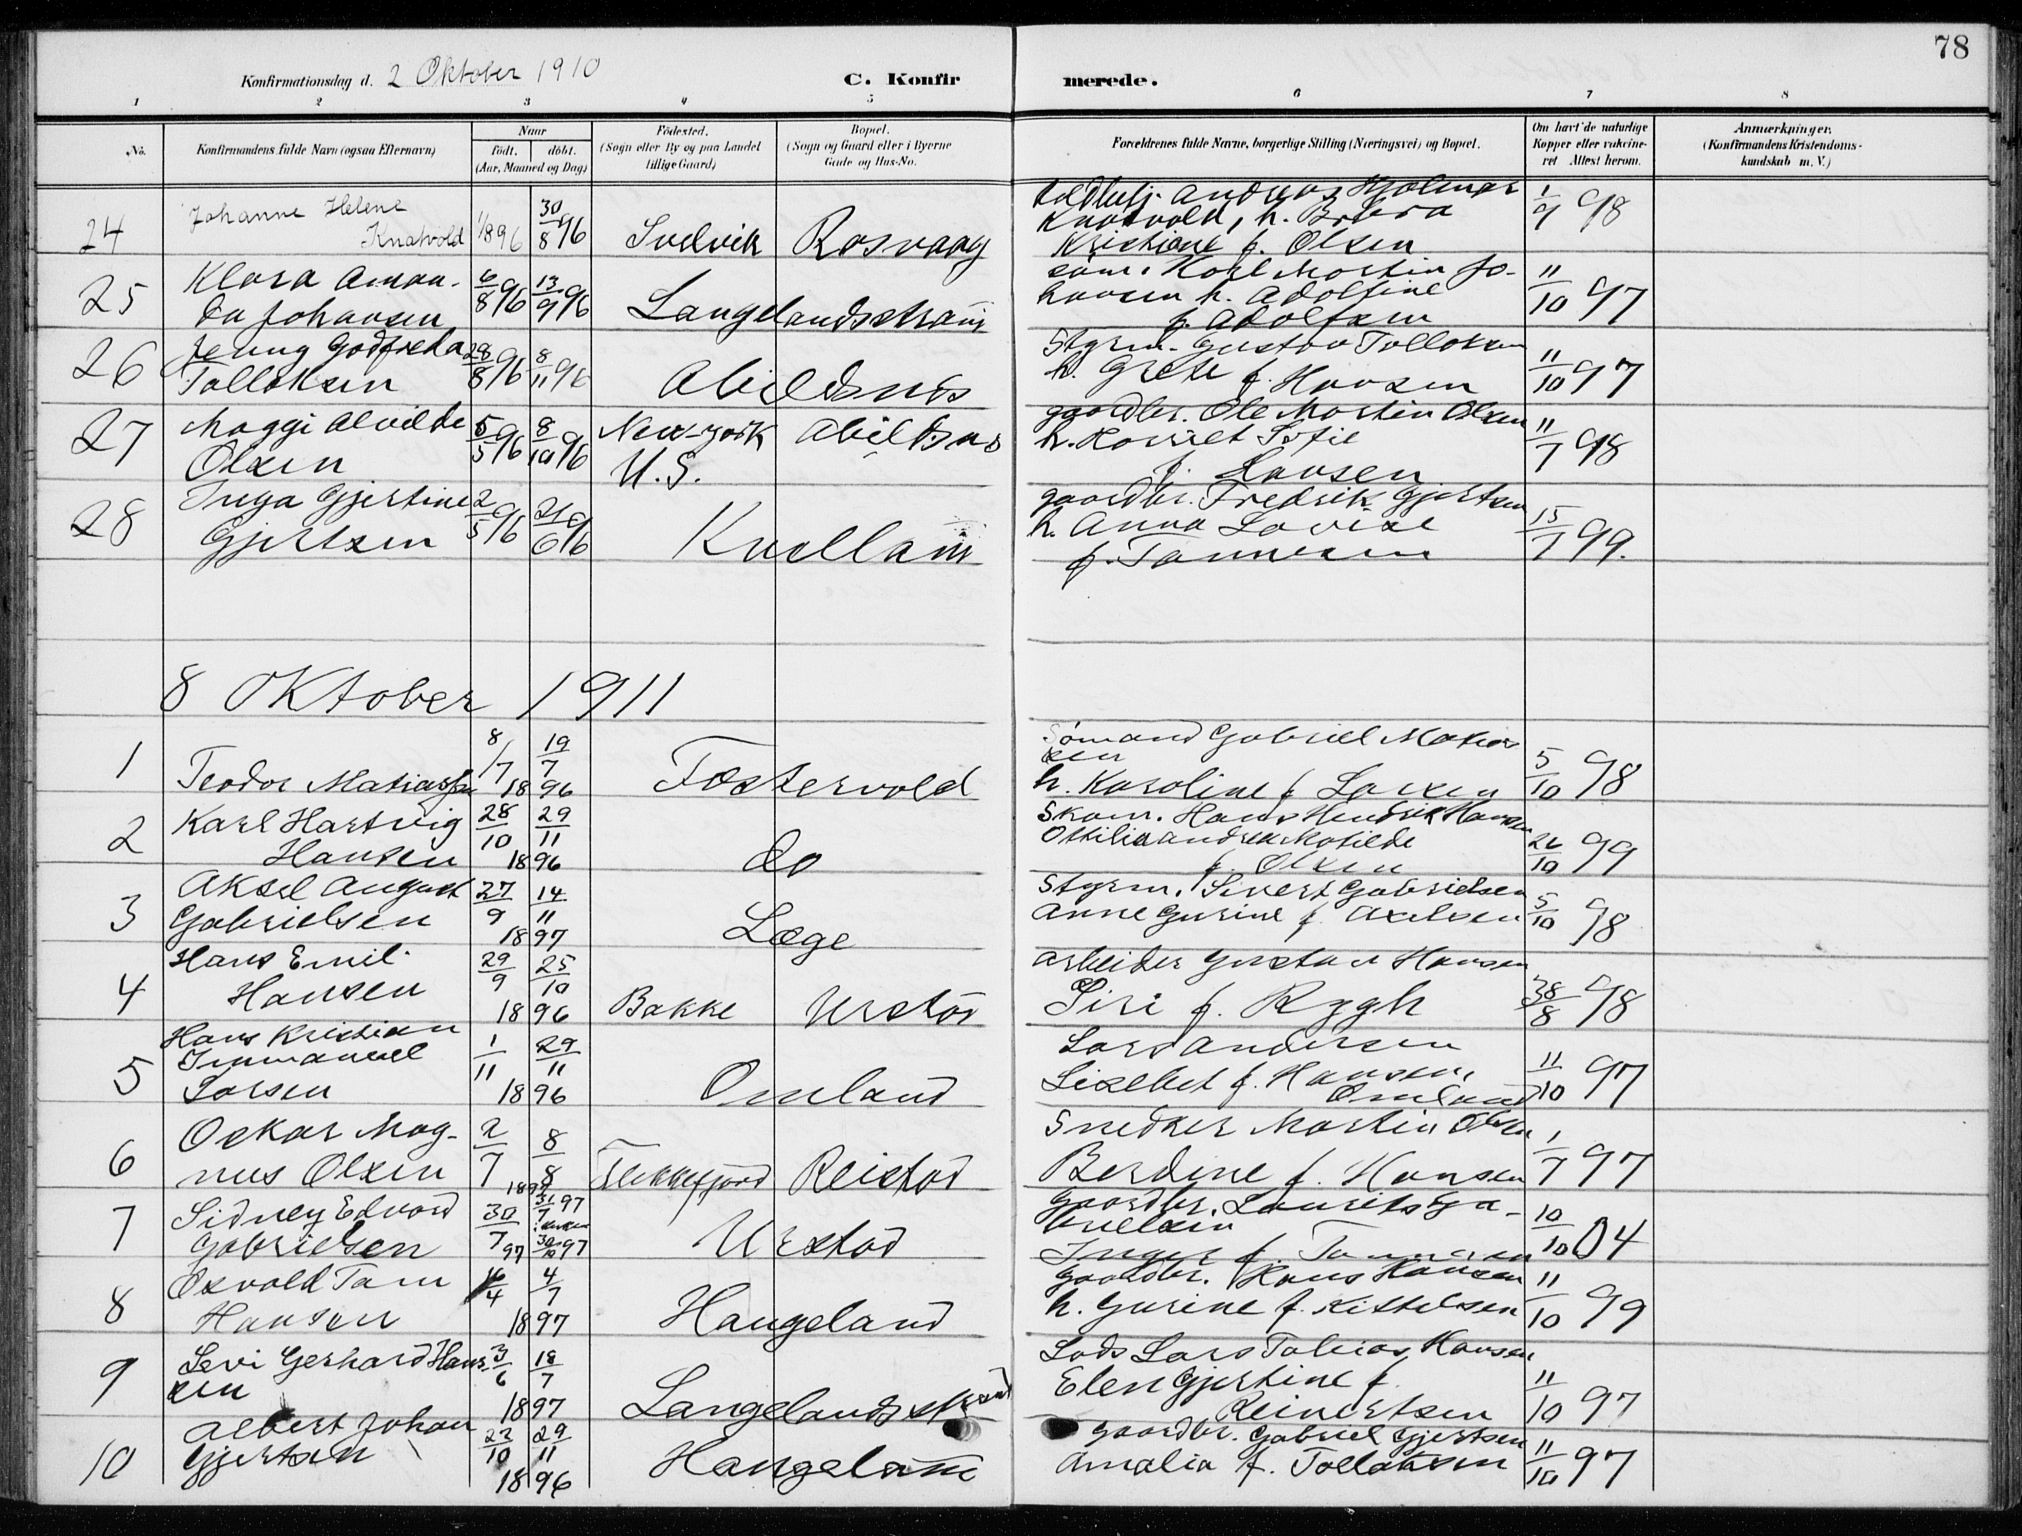 78
Konfirmationsdag d. 2 Oktober 1910 C. Konfir merede.
1 2 3 4 5 6 7 8
No. Konfirmandens fulde Navn (ogsaa Efternavn) Naar født. døbt. (Aar, Maaned og Dag) Fødested. (Sogn eller By og paa Landet tillige Gaard) Bopæl. (Sogn og Gaard eller i Byerne Gade og Hus-No. Forældrenes fulde Navne, borgerlige Stilling (Næringsvei) og Bopæl. Om havt de naturlige Kopper eller vakcineret Attest herom. Anmærkninger. (Konfirmandens Kristendomskundskab m. V.)
24 Johanne Helene Knatvold 1/8 96 30/8 96 Svelvik Rosvaag
Andreas Hjalmar
Knatvold, h.
Kristiane f. Olsen 1/9 98
25 Klara Aman-
da Johansen 6/8 96 13/9 96 Langelandsstrand
søm. Karl Martin Jo-
hansen h. Adolfine
f. Adolfsen 11/10 97
26 Jenny Godfreda
Tolloksen 28/8 96 8/11 96 Abildsnes
Styrm. Gustav Tolloksen
h. Grete f. Hansen 11/10 97
27 Maggi Alvilde
Olsen 5/5 96 8/10 96 New-York U.S. Abildsnes
gaardbr. Ole Martin Olsen
h. Sofie
f. Hansen 11/7 98
28 Inga Gjertine
Gjertsen 2/5 96 21/6 96
gaardbr. Fredrik Gjertsen
h. Anna Lovise
f. Tønnesen 15/7 99.
8 Oktober 1911
1 Teodor Matiassen 8/7 19/7 1896 Fostervold
Sømand Gabriel Matias
sen
h. Karoline f. Larsen 5/10 98
2 Karl Hartvig
Hansen 28/10 29/11 1896 do
Skom. Hans Hendrik Hansen
Ottilia Andrea Matilde
f. Olsen 26/10 99
3 Aksel August
Gabrielsen 27/9 14/11 1897 Læge
Styrm. Sivert Gabrielsen
Anne Gurine f. Axelsen 5/10 98
4 Hans Emil
Hansen 29/9 25/10 1896 Bakke Urstad
arbeider Gustav Hansen
Siri f. Rygh 38/8 98
5 Hans Kristian
Immanuel
Larsen 1/11 29/11 1896 Omland
Lars Andersen
Lisebet f. Hansen,
Omland 11/10 97
6 Oskar Mag-
nus Olsen 2/7 8/8 1897 Flekkefjord Reistad
Snedker Martin Olsen
Berdine f. Hansen 1/7 97
7 Sidney Edvard
Gabrielsen 30/7 97 31/7 97 30/10 97 Urstad
Gaardbr. Laurits Ga-
brielsen
Inger f. Tønnesen 10/10 04
8 Osvald Tom
Hansen 4/4 4/7 1897 Haugeland
gaardbr. Hans Hansen
h. Gurine f. Kittelsen 11/10 99
9 Levi Gerhard Han-
sen 3/6 18/7 1897 Langelandsstrand
Lods Lars Tobias Hansen
Elen Gjertine f.
Reinertsen 11/10 97
10 Albert Johan
Gjertsen 23/10 29/11 1896 Haugeland
gaardbr. Gabriel Gjertsen
Amalia f. Tollaksen 11/10 97